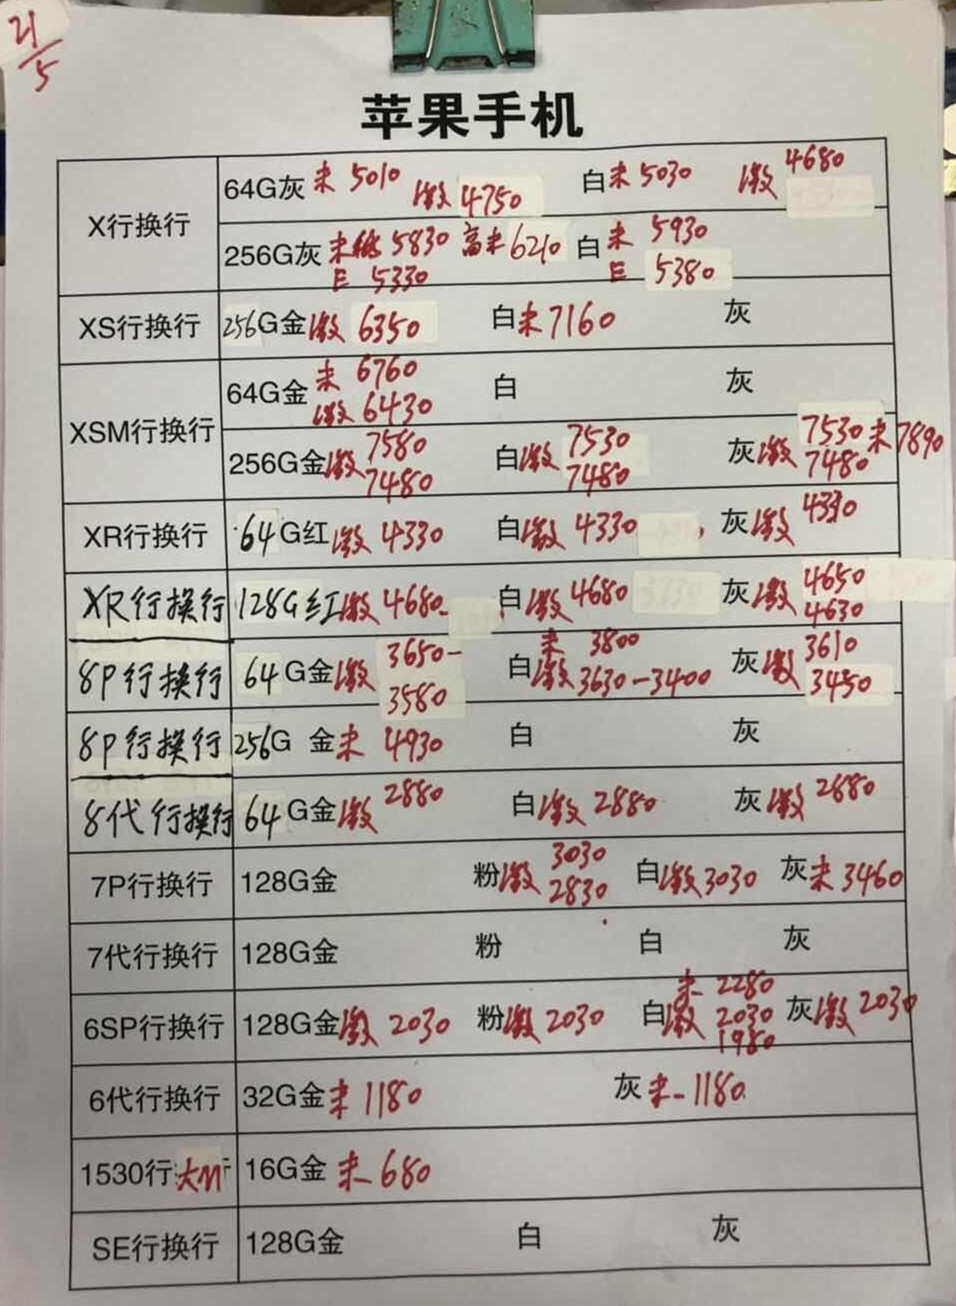 21/5
苹果手机
X行换行 64G灰 未 5010 激 4750 白未 5030 激 4680
256G灰 未 5830 高未 6210 白 未 5930
E 5330 E 5380
XS行换行 256G金激 6350 白未7160 灰
XSM行换行 64G金 未 6760 白 灰
激 6430
256G金激 7580 白激 7530 灰激 7530 未7890
7480 7480 7480
XR行换行 64G红激 4330 白激 4330 灰激 4330
XR行换行 128G红激 4680 白激 4680 灰激 4650
4630
8P行换行 64G金激 3650- 白 未 3800 灰激 3610
3580 激 3630-3400 3450
8P行换行 256G 金未 4930 白 灰
8代行换行 64G金激 2880 白激 2880 灰激 2880
7P行换行 128G金 粉激 3030 白激3030 灰未3460
2830
7代行换行 128G金 粉 白 灰
6SP行换行 128G金激 2030 粉激 2030 白 未 2280 灰激 2030
激 2030
1980
6代行换行 32G金未 1180 灰未-1180
1530行 大M 16G金 未 680
SE行换行 128G金 白 灰